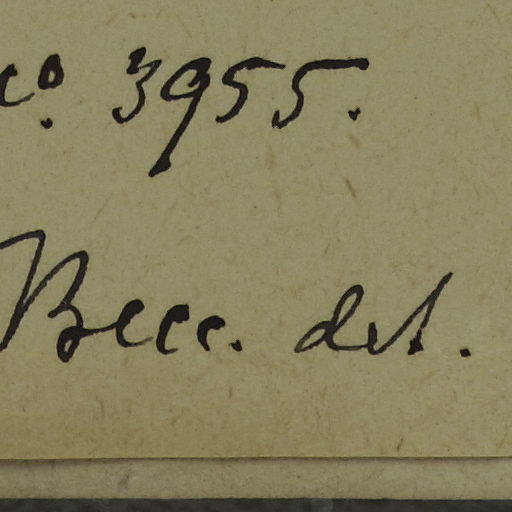 co. 3955.
Becc. det.